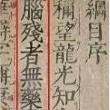 綱目序
稱望龍光知
腦殘者無藥